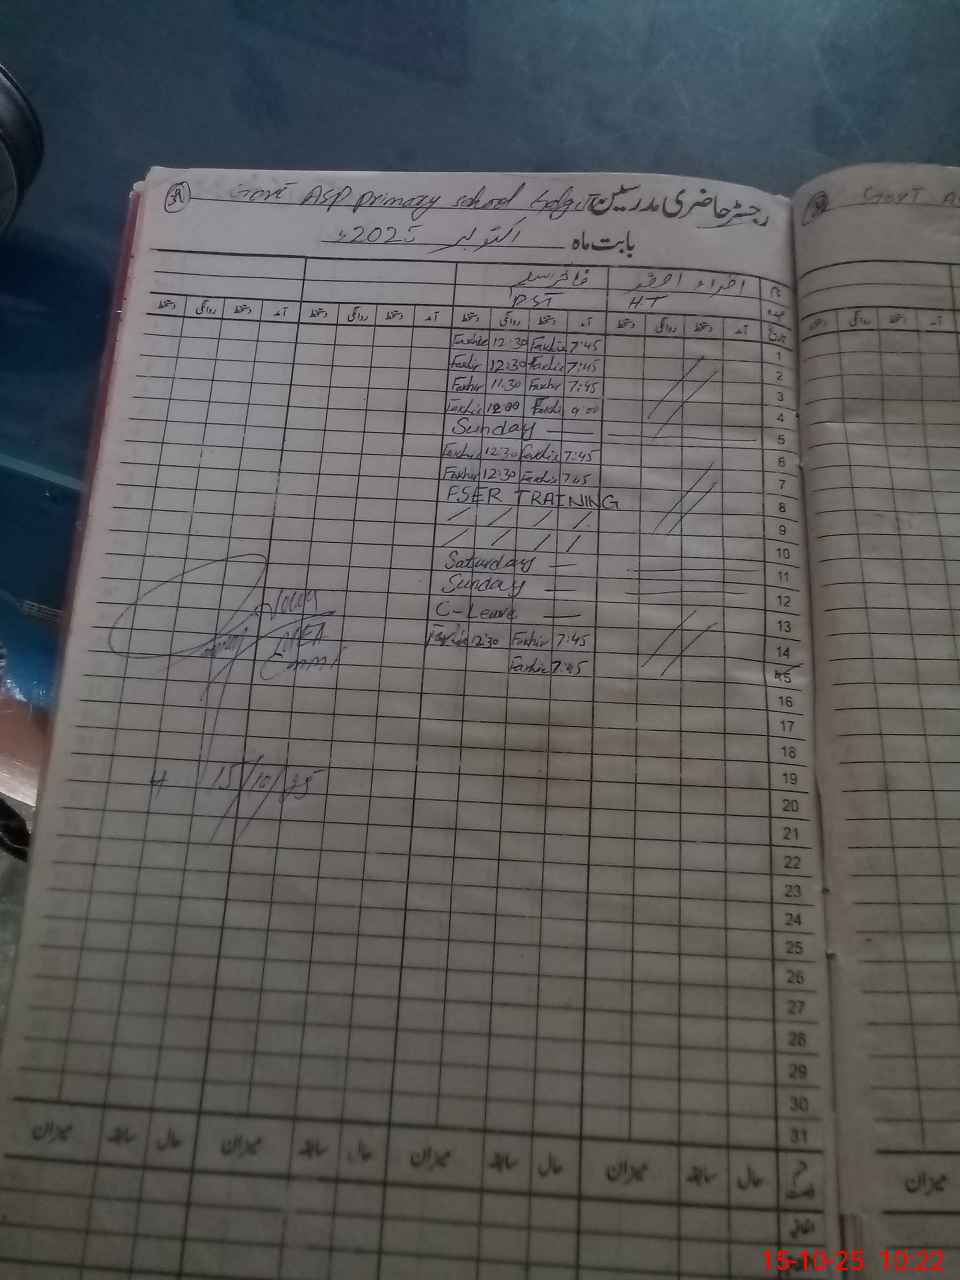 Govt ASP primary school رجسٹر حاضری مدرسین
بابت ماہ اکتوبر 2025ء
نام
PST HT
عہدہ
آمد دستخط روانگی دستخط آمد دستخط روانگی دستخط آمد دستخط روانگی دستخط آمد دستخط روانگی دستخط
1 7:45 Fakhir 12:30 Fakhir
2 7:45 Fakhir 12:30 Fakhir
3 7:45 Fakhir 11:30 Fakhir
4 9:00 Fakhir 12:00 Fakhir
5 Sunday
6 7:45 Fakhir 12:30 Fakhir
7 7:45 Fakhir 12:30 Fakhir
8 FSER TRAINING
9
10
11 Saturday
12 Sunday
13 C-Leave
14 7:45 Fakhir 12:30 Fakhir
15 7:45 Fakhir
16
17
18
19
15/10/25
20
21
22
23
24
25
26
27
28
29
30
31
حال سابقہ میزان حال سابقہ میزان حال سابقہ میزان حال سابقہ میزان
Govt
آمد دستخط روانگی دستخط
میزان
15-10-25 10:22